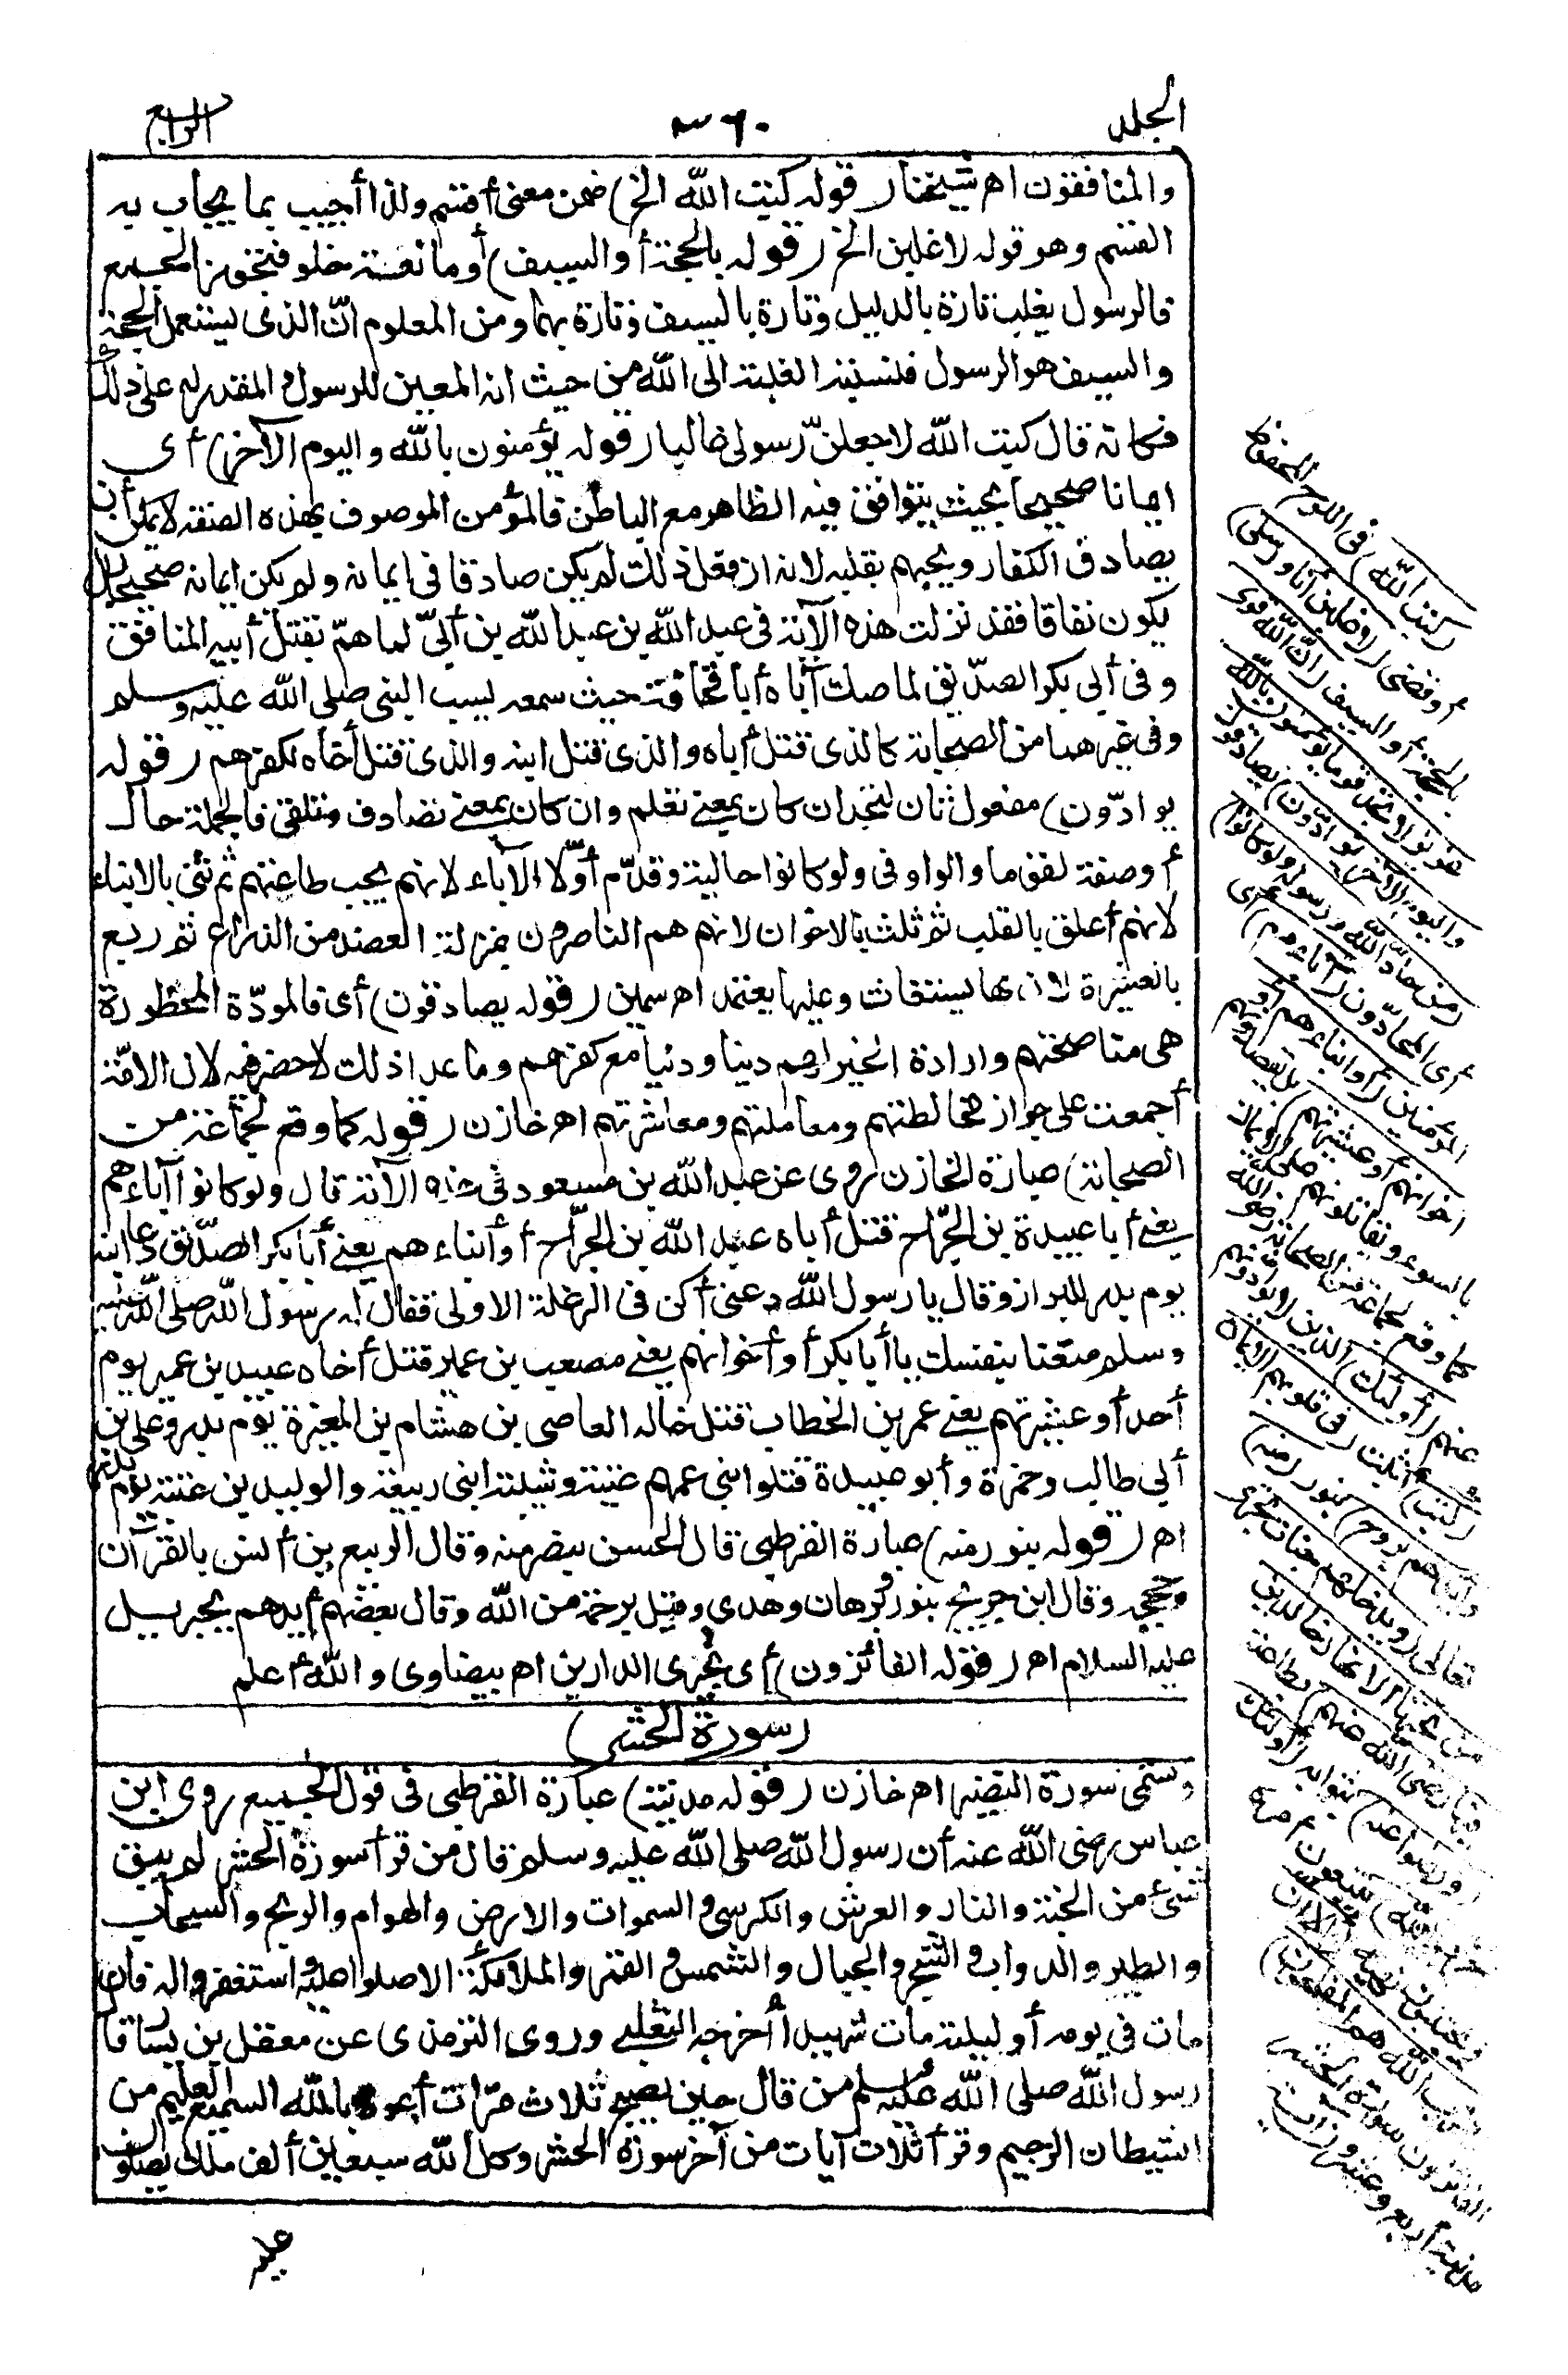 الجلد
٣٦٠
الرابع
والمنافقون اه شيخنا (قوله كتب الله الخ) ضمن معنى أقسم ولذا أجيب بما يجاب به
القسم وهو قوله لاغلبن الخ (قوله بالحجة أو السيف) أو مانعة خلو فتجوز الجمع
فالرسول يغلب تارة بالدليل وتارة بالسيف وتارة بهما ومن المعلوم انّ الذى يستعمل الحجة
والسيف هو الرسول فلنسبته الغلبة الى الله من حيث انه المعين للرسول والمقدر له على ذلك
فكانه قال كتب الله لاجعلنّ رسولى غالبا (قوله يؤمنون بالله واليوم الآخر) أى
ايمانا صحيحا بحيث يتوافق فيه الظاهر مع الباطن فالمؤمن الموصوف بهذه الصفة لا يمكن أن
يصادق الكفار ويحبهم بقلبه لانه ان فعل ذلك لم يكن صادقا فى ايمانه ولم يكن ايمانه صحيحا بل
يكون نفاقا فقد نزلت هذه الآية فى عبد الله بن عبد الله بن أبىّ لما همّ بقتل أبيه المنافق
وفى أبى بكر الصدّيق لما صك أباه أبا قحافة حيث سمعه يسب النبى صلى الله عليه وسلم
وفى غيرهما من الصحابة كالذى قتل أباه والذى قتل ابنه والذى قتل أخاه لكفرهم (قوله
يوادّون) مفعول ثان لتجد ان كان بمعنى تعلم وان كان بمعنى تصادف وتلقى فالجملة حال
أو صفة لقوما والواو فى ولو كانوا حالية وقدّم أوّلا الآباء لانهم يجب طاعتهم ثم ثنى بالابناء
لانهم أعلق بالقلب ثم ثلث بالاخوان لانهم هم الناصرون بمنزلة العضد من الذراع ثم ربع
بالعشيرة لان بها يستغاث وعليها يعتمد اه سمين (قوله يصادقون) أى فالمودّة المحظورة
هى مناصحتهم وارادة الخير لهم دينا ودنيا مع كفرهم وما عدا ذلك لا حضر فيه لان الامّة
أجمعت على جواز مخالطتهم ومعاملتهم ومعاشرتهم اه خازن (قوله كما وقع لجماعة من
الصحابة) عبارة الخازن روى عن عبد الله بن مسعود فى هذه الآية قال ولو كانوا آباءهم
يعنى أبا عبيدة بن الجرّاح قتل أباه عبد الله بن الجرّاح أو أبناءهم يعنى أبا بكر الصدّيق دعا ابنه
يوم بدر للبراز وقال يا رسول الله دعنى أكن فى الرعلة الاولى فقال له رسول الله صلى الله عليه
وسلم متعنا بنفسك يا أبا بكر أو أخوانهم يعنى مصعب بن عمير قتل أخاه عبيد بن عمير يوم
أحد أو عشيرتهم يعنى عمر بن الخطاب قتل خاله العاصى بن هشام بن المغيرة يوم بدر وعلى بن
أبى طالب وحمزة وأبو عبيدة قتلوا بنى عمهم عتبة وشيبة ابنى ربيعة والوليد بن عتبة يوم بدر
اه (قوله بنور منه) عبارة القرطبى قال الحسن بنصر منه وقال الربيع بن أنس بالقرآن
وحججه وقال ابن جريج بنور وبرهان وهدى وقيل برحمة من الله وقال بعضهم أيدهم بجبريل
عليه السلام اه (قوله الفائزون) أى بخيرى الدارين اه بيضاوى والله أعلم
(سورة الحشر)
وتسمى سورة النضير اه خازن (قوله مدنية) عبارة القرطبى فى قول الجميع روى ابن
عباس رضى الله عنه أن رسول الله صلى الله عليه وسلم قال من قرأ سورة الحشر لم يبق
شئ من الجنة والنار والعرش والكرسى والسموات والارض والهوام والريح والسحاب
والطير والدواب والشجر والجبال والشمس والقمر والملائكة الا صلوا عليه واستغفروا له فان
مات فى يومه أو ليلته مات شهيدا أخرجه الثعلبى وروى الترمذى عن معقل بن يسار قال
رسول الله صلى الله عليه وسلم من قال حين يصبح ثلاث مرّات أعوذ بالله السميع العليم من
الشيطان الرجيم وقرأ ثلاث آيات من آخر سورة الحشر وكل الله سبعين ألف ملك يصلون
عليه
(كتب الله) فى اللوح المحفوظ
أو قضى (لاغلبن أنا ورسلى)
بالحجة أو السيف (انّ الله قوى
عزيز لا تجد قوما يؤمنون بالله
واليوم الآخر يوادّون) يصادقون
(من حادّ الله ورسوله ولو كانوا)
أى المحادّون (آباءهم) أى
المؤمنين (أو أبناءهم أو
اخوانهم أو عشيرتهم) بل يقصدونهم
بالسوء ويقاتلونهم على الايمان
كما وقع لجماعة من الصحابة رضى الله
عنهم (أولئك) الذين لا يوادّونهم
(كتب) أثبت (فى قلوبهم الايمان
وأيدهم بروح) بنور (منه)
تعالى (ويدخلهم جنات تجرى
من تحتها الانهار خالدين
فيها رضى الله عنهم) بطاعته
(ورضوا عنه) بثوابه (أولئك
حزب الله) يتبعون أمره
ويجتنبون نهيه (ألا ان
حزب الله هم المفلحون)
الفائزون (سورة الحشر)
مدنية أربع وعشرون آية